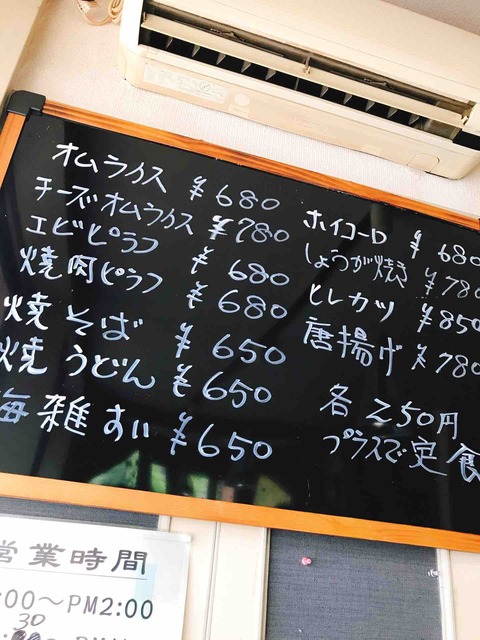 オムライス ¥680
チーズオムライス ¥780
エビピラフ ¥680
焼肉ピラフ ¥680
焼そば ¥650
焼うどん ¥650
海雑すい ¥650
ホイコーロ ¥680
しょうが焼き ¥780
ヒレカツ ¥850
唐揚げ ¥780
各250円
プラスで定食
営業時間
:00〜PM2:00
30